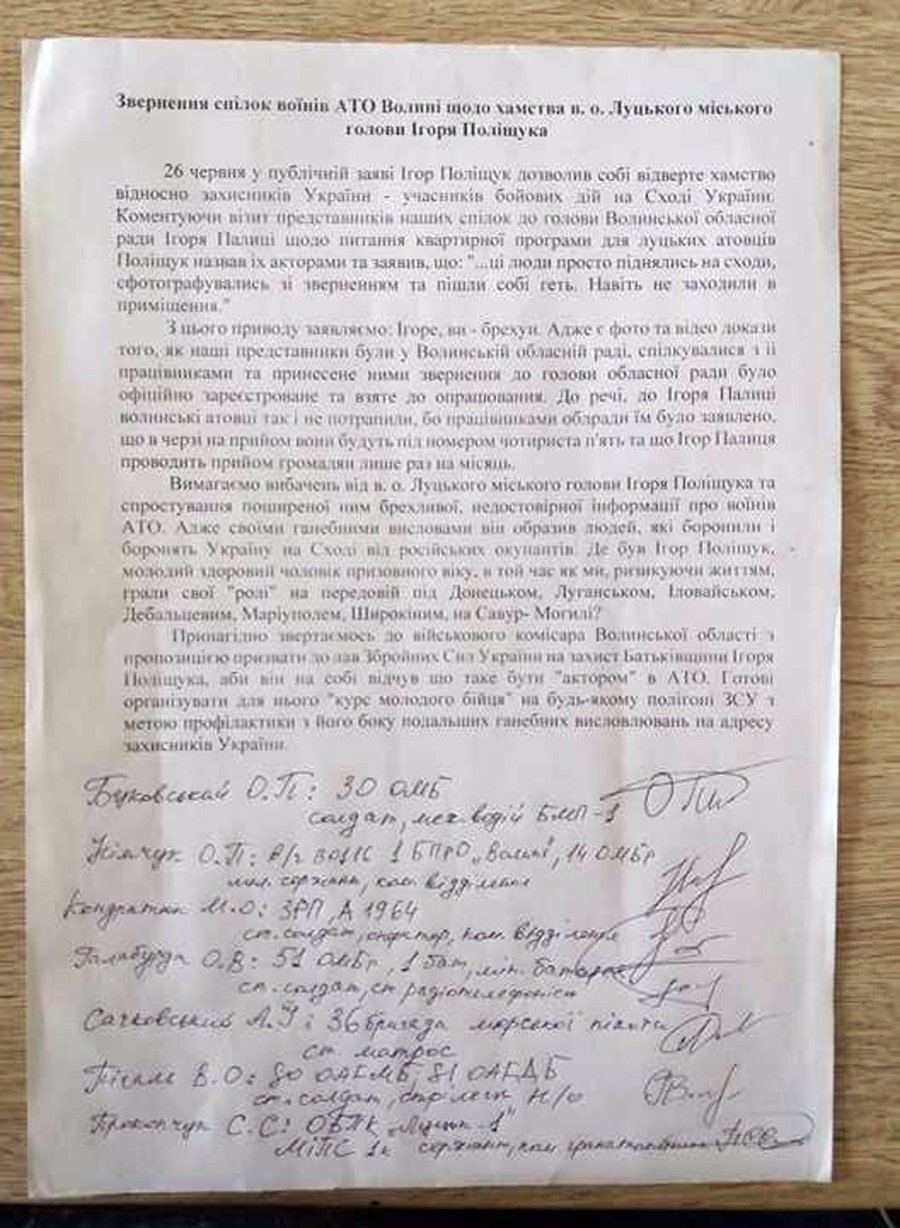 Звернення спілок воїнів АТО Волині щодо хамства в. о. Луцького міського
голови Ігоря Поліщука
26 червня у публічній заяві Ігор Поліщук дозволив собі відверте хамство
відносно захисників України - учасників бойових дій на Сході України.
Коментуючи візит представників наших спілок до голови Волинської обласної
ради Ігоря Палиці щодо питання квартирної програми для луцьких атовців
Поліщук назвав їх акторами та заявив, що: "...ці люди просто піднялись на сходи,
сфотографувались зі зверненням та пішли собі геть. Навіть не заходили в
приміщення."
З цього приводу заявляємо: Ігоре, ви - брехун. Адже є фото та відео докази
того, як наші представники були у Волинській обласній раді, спілкувалися з її
працівниками та принесене ними звернення до голови обласної ради було
офіційно зареєстроване та взяте до опрацювання. До речі, до Ігоря Палиці
волинські атовці так і не потрапили, бо працівниками облради їм було заявлено,
що в черзі на прийом вони будуть під номером чотириста п'ять та що Ігор Палиця
проводить прийом громадян лише раз на місяць.
Вимагаємо вибачень від в. о. Луцького міського голови Ігоря Поліщука та
спростування поширеної ним брехливої, недостовірної інформації про воїнів
АТО. Адже своїми ганебними висловами він образив людей, які боронили і
боронять Україну на Сході від російських окупантів. Де був Ігор Поліщук,
молодий здоровий чоловік призовного віку, в той час як ми, ризикуючи життям,
грали свої "ролі" на передовій під Донецьком, Луганськом, Іловайськом,
Дебальцевим, Маріуполем, Широкіним, на Савур- Могилі?
Принагідно звертаємось до військового комісара Волинської області з
пропозицією призвати до лав Збройних Сил України на захист Батьківщини Ігоря
Поліщука, аби він на собі відчув що таке бути "актором" в АТО. Готові
організувати для нього "курс молодого бійця" на будь-якому полігоні ЗСУ з
метою профілактики з його боку подальших ганебних висловлювань на адресу
захисників України.
Буковський О.П: 30 ОМБ
солдат, мех. водій БМП-1
О.П: 1 БПРО „Волинь", 14 ОМБр
мол. сержант, ком. відділення
Кондратюк М.О: ЗРП, А 1964
ст. солдат, ком. відділення
Галабурда О.В: 51 ОМБр, 1 бат, мін. батарея
ст. солдат, ст. радіотелефоніст
Сачковський А.У: 36 бригада морської піхоти
ст. матрос
В.О: 80 ОАЕМБ, 81 ОАЕДБ
ст. солдат, стрілець Н/О
Прокопчук С.С:
сержант, ком.